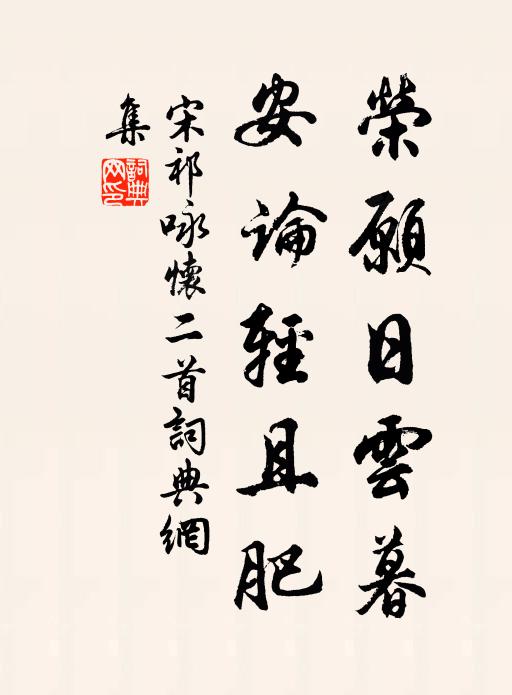 榮願日雲暮
安論輕且肥
宋祁咏懷二首詞典網
集
詞典
網印